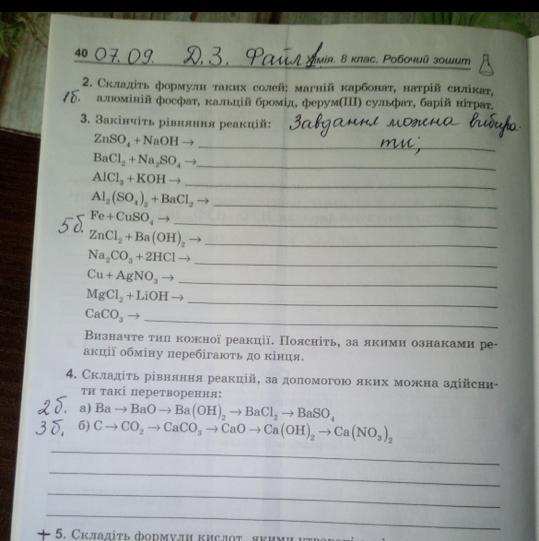 40 07.09. Д.З. Файл Хімія. 8 клас. Робочий зошит
2. Складіть формули таких солей: магній карбонат, натрій силікат,
1б. алюміній фосфат, кальцій бромід, ферум(III) сульфат, барій нітрат.
3. Закінчіть рівняння реакцій: Завдання можна вибира-
ти;
ZnSO₄ + NaOH →
BaCl₂ + Na₂SO₄ →
AlCl₃ + KOH →
Al₂(SO₄)₃ + BaCl₂ →
Fe + CuSO₄ →
5б.
ZnCl₂ + Ba(OH)₂ →
Na₂CO₃ + 2HCl →
Cu + AgNO₃ →
MgCl₂ + LiOH →
CaCO₃ →
Визначте тип кожної реакції. Поясніть, за якими ознаками ре-
акції обміну перебігають до кінця.
4. Складіть рівняння реакцій, за допомогою яких можна здійсни-
ти такі перетворення:
2б. а) Ba → BaO → Ba(OH)₂ → BaCl₂ → BaSO₄
3б. б) C → CO₂ → CaCO₃ → CaO → Ca(OH)₂ → Ca(NO₃)₂
+ 5. Складіть формули кислот, якими